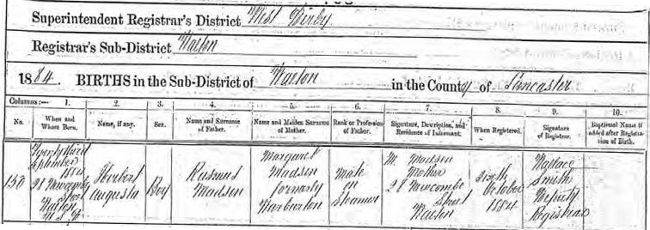 Superintendent Registrar's District West Derby
Registrar's Sub-District Walton
1884. BIRTHS in the Sub-District of Walton in the County of Lancaster
Columns:— 1. 2. 3. 4. 5. 6. 7. 8. 9. 10.
No. When and Where Born. Name, if any. Sex. Name and Surname of Father. Name and Maiden Surname of Mother. Rank or Profession of Father. Signature, Description, and Residence of Informant. When Registered. Signature of Registrar. Baptismal Name if added after Registration of Birth.
150 September 1884 28 Newcombe Street Walton Herbert Augusta Boy Rasmus Madsen Margaret Madsen formerly Warburton Mate on Steamer M. Madsen Mother 28 Newcombe Street Walton October 1884 Wallace Smith Deputy Registrar